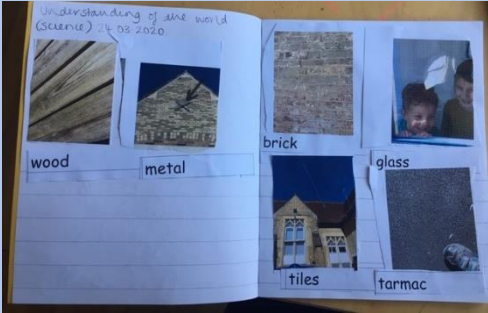 Understanding of the world
(science) 24.03.2020.
wood
metal
brick
glass
tiles
tarmac